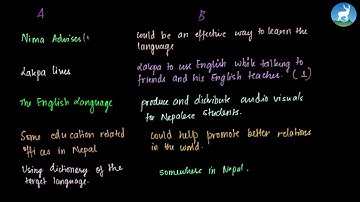 A B
Nima Advises (
could be an effective way to learn the
language
Lakpa lives
Lakpa to use English while talking to
friends and his English teacher. (1)
The English Language
produce and distribute audio visuals
for Nepalese students.
Some education related
offices in Nepal
could help promote better relations
in the world.
Using dictionary of the
target language.
somewhere in Nepal.